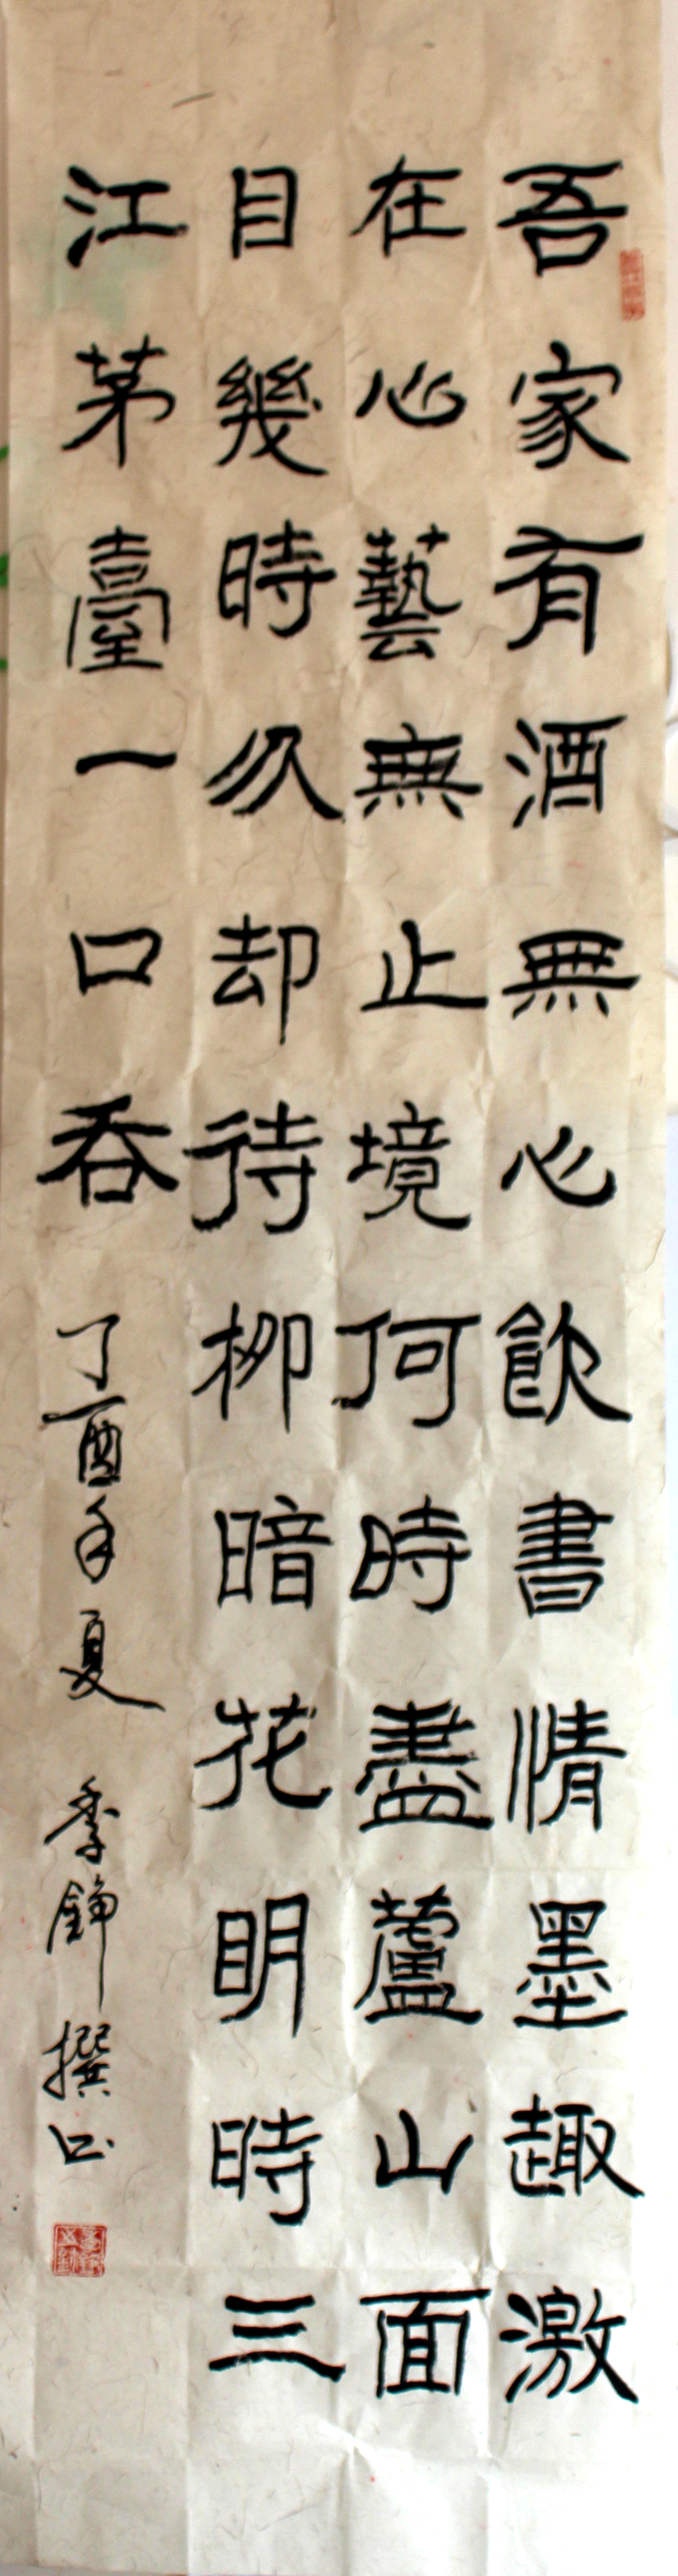 吾家有酒無心飲書情墨趣激
在心藝無止境何時盡蘆山面
目幾時久却待柳暗花明時三
江茅臺一口吞
丁酉年夏 季錚撰书